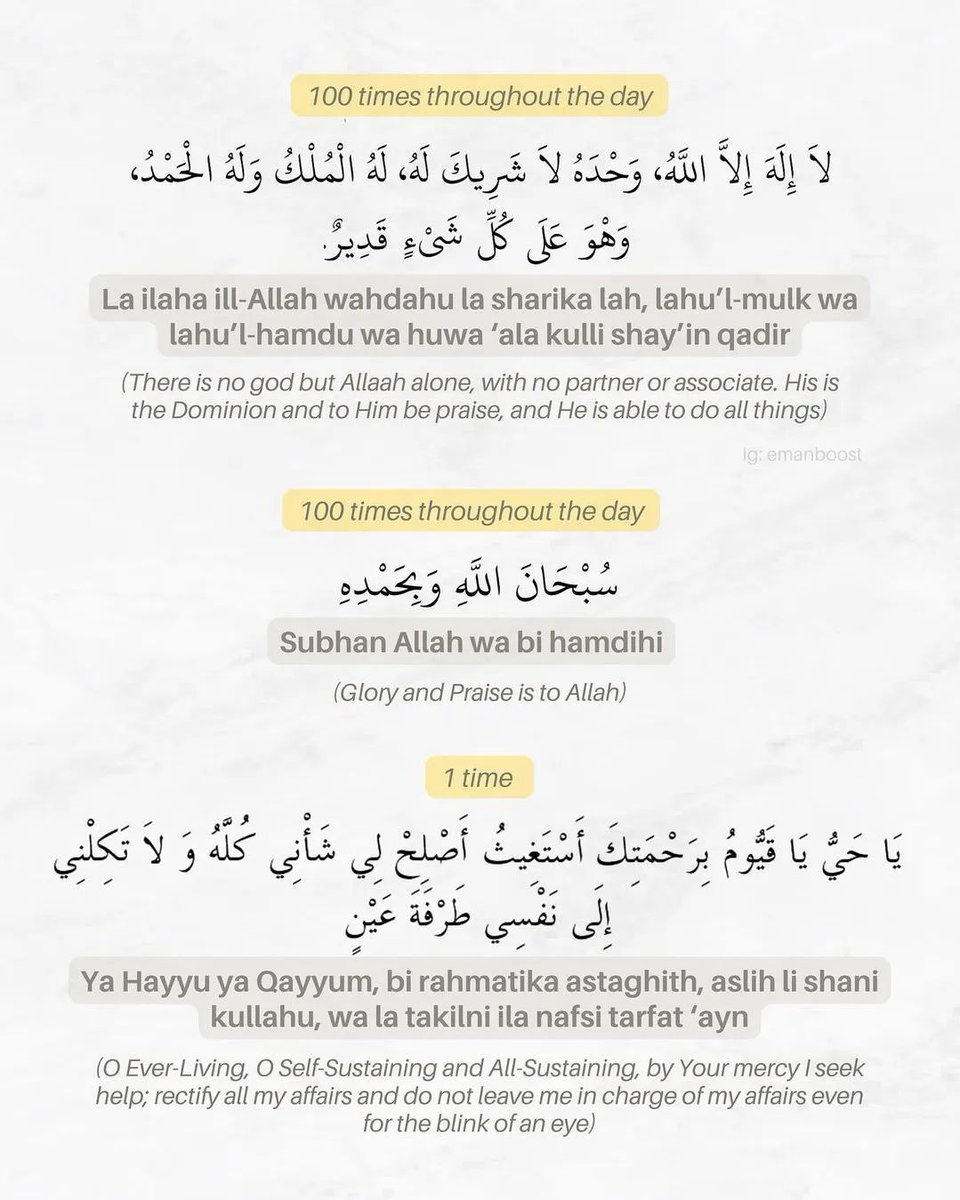 100 times throughout the day
لاَ إِلَهَ إِلاَّ اللَّهُ، وَحْدَهُ لاَ شَرِيكَ لَهُ، لَهُ الْمُلْكُ وَلَهُ الْحَمْدُ،
وَهْوَ عَلَى كُلِّ شَىْءٍ قَدِيرٌ.
La ilaha ill-Allah wahdahu la sharika lah, lahu’l-mulk wa
lahu’l-hamdu wa huwa ‘ala kulli shay’in qadir
(There is no god but Allaah alone, with no partner or associate. His is
the Dominion and to Him be praise, and He is able to do all things)
Ig: emanboost
100 times throughout the day
سُبْحَانَ اللَّهِ وَبِحَمْدِهِ
Subhan Allah wa bi hamdihi
(Glory and Praise is to Allah)
1 time
يَا حَيُّ يَا قَيُّومُ بِرَحْمَتِكَ أَسْتَغِيثُ أَصْلِحْ لِي شَأْنِي كُلَّهُ وَ لاَ تَكِلْنِي
إِلَى نَفْسِي طَرْفَةَ عَيْنٍ
Ya Hayyu ya Qayyum, bi rahmatika astaghith, aslih li shani
kullahu, wa la takilni ila nafsi tarfat ‘ayn
(O Ever-Living, O Self-Sustaining and All-Sustaining, by Your mercy I seek
help; rectify all my affairs and do not leave me in charge of my affairs even
for the blink of an eye)